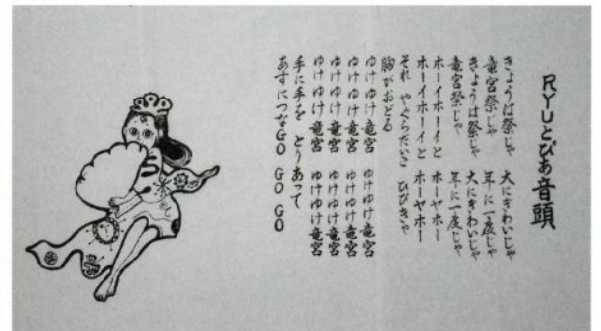 RYUとぴあ音頭
きょうは祭じゃ 大にぎわいじゃ
竜宮祭じゃ 年に一度じゃ
きょうは祭じゃ 大にぎわいじゃ
竜宮祭じゃ 年に一度じゃ
ホーイホーイと ホーヤホー
ホーイホーイと ホーヤホー
それ やぐらだいこ ひびきゃ
胸がおどる
ゆけゆけ竜宮 ゆけゆけ竜宮
ゆけゆけ竜宮 ゆけゆけ竜宮
ゆけゆけ竜宮 ゆけゆけ竜宮
ゆけゆけ竜宮 ゆけゆけ竜宮
手に手を とりあって
あすにつなGO GO GO